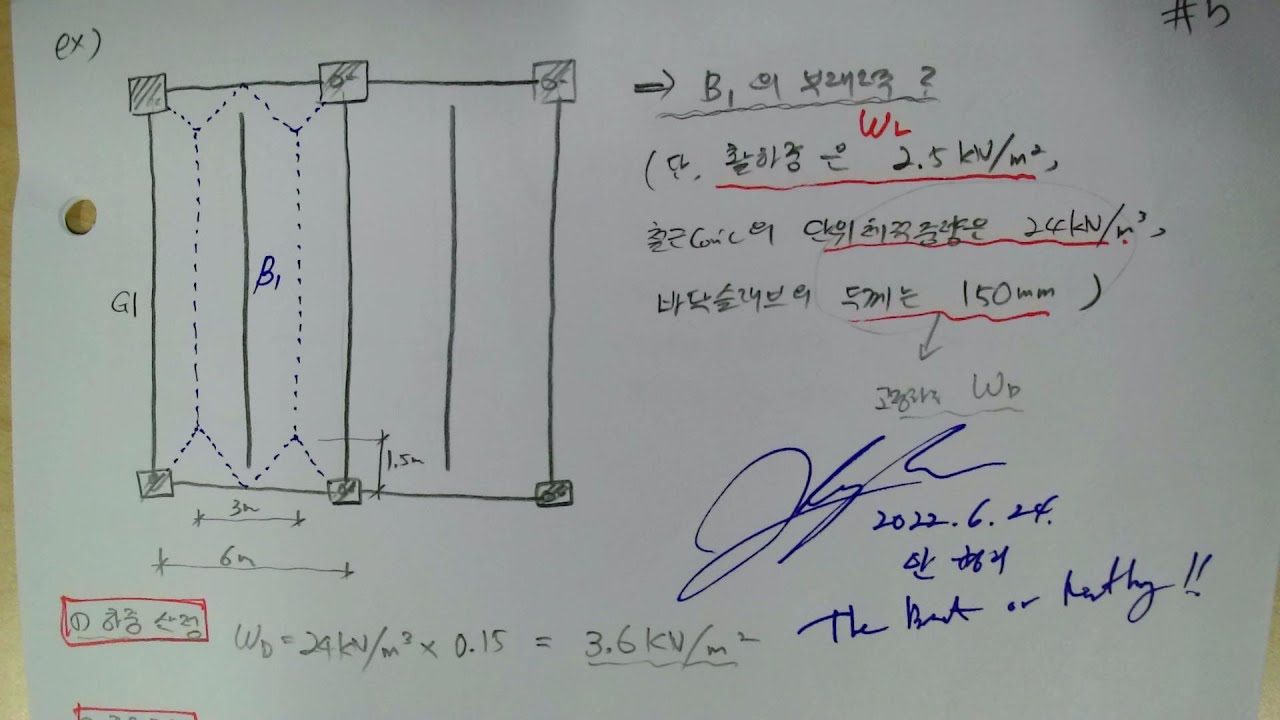 #5
ex)
⇒ B₁의 부재력?
W_L
(단, 활하중은 2.5kN/m²,
철근Conc의 단위체적중량은 24kN/m³,
바닥슬래브의 두께는 150mm)
고정하중 W_D
G1
B₁
1.5m
3m
6m
2022.6.24.
The Best or Nothing!!
① 하중 산정
W_D = 24kN/m³ × 0.15 = 3.6kN/m²